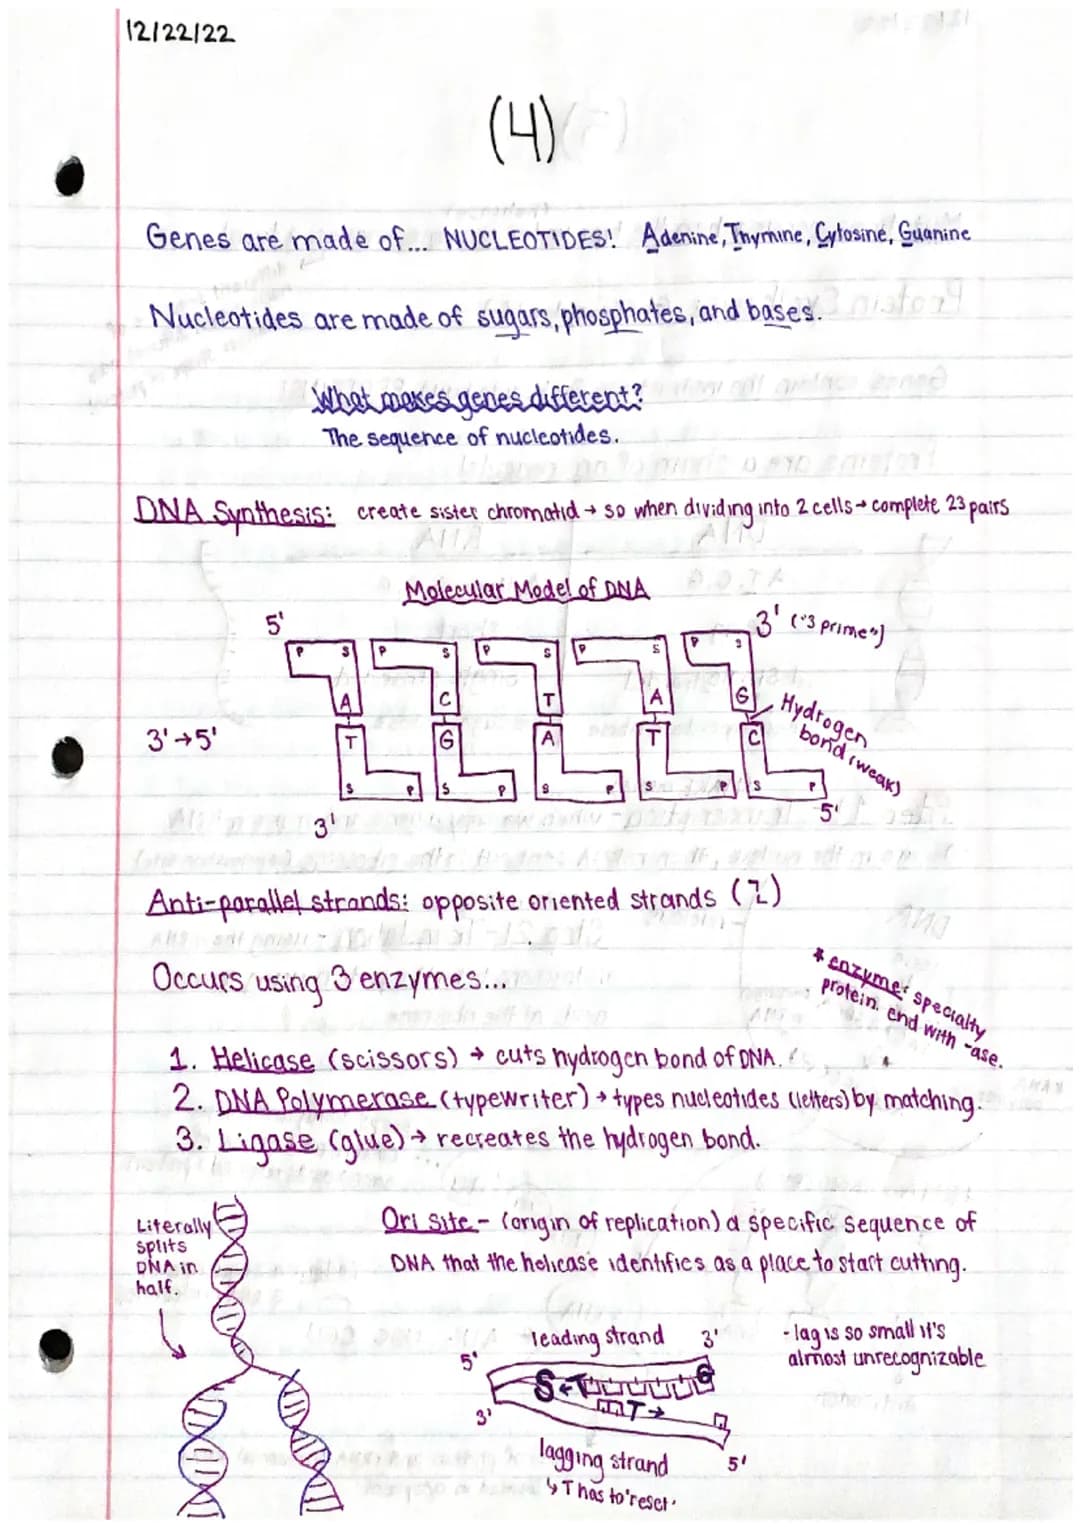 12/22/22
(4)
Genes are made of... NUCLEOTIDES! Adenine, Thymine, Cytosine, Guanine
Nucleotides are made of sugars, phosphates, and bases.
What makes genes different?
The sequence of nucleotides.
DNA Synthesis: create sister chromatid → so when dividing into 2 cells → complete 23 pairs
Molecular Model of DNA
5' 3' ("3 prime")
P S P S P S P S P S
A C T A G
3'→5' T G A T C
Hydrogen
bond (weak)
S P S P S P S P S P
3' 5'
Anti-parallel strands: opposite oriented strands (2)
Occurs using 3 enzymes...
* enzyme: specialty
protein. end with -ase.
1. Helicase (scissors) → cuts hydrogen bond of DNA.
2. DNA Polymerase (typewriter) → types nucleotides (letters) by matching.
3. Ligase (glue) → recreates the hydrogen bond.
Literally
splits
DNA in
half.
Ori site - (origin of replication) a specific sequence of
DNA that the helicase identifies as a place to start cutting.
leading strand 3'
5'
S ←T G
T→
3'
lagging strand 5'
↳ T has to 'reset'
- lag is so small it's
almost unrecognizable